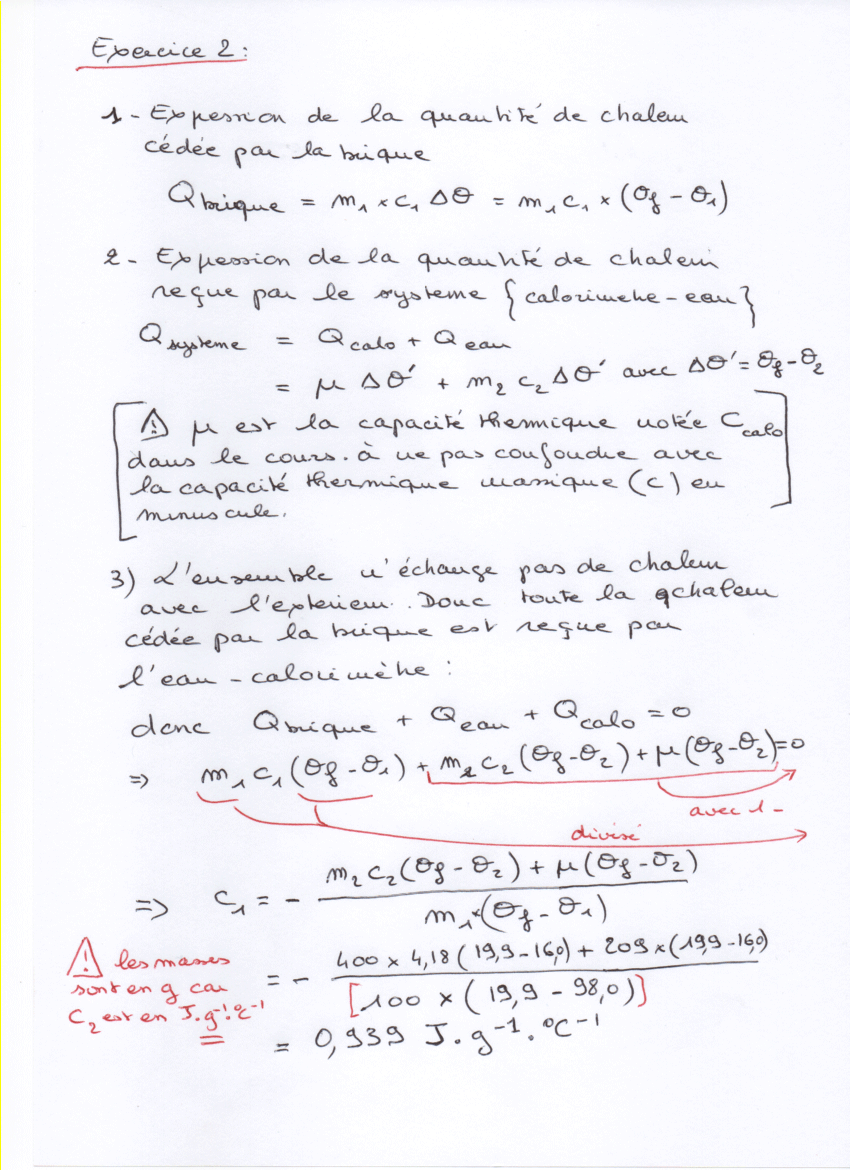 Exercice 2 :
1 - Expression de la quantité de chaleur
cédée par la brique
Q brique = m₁ × c₁ Δθ = m₁ c₁ × (θf - θ₁)
2 - Expression de la quantité de chaleur
reçue par le systeme { calorimetre - eau }
Q systeme = Q calo + Q eau
= μ Δθ' + m₂ c₂ Δθ' avec Δθ' = θf - θ₂
⚠ μ est la capacité thermique notée C calo
dans le cours. à ne pas confondre avec
la capacité thermique massique (c) en
minuscule.
3) L'ensemble n'échange pas de chaleur
avec l'exterieur. Donc toute la qchaleur
cédée par la brique est reçue par
l'eau - calorimètre :
donc Q brique + Q eau + Q calo = 0
=> m₁ c₁ (θf - θ₁) + m₂ c₂ (θf - θ₂) + μ (θf - θ₂) = 0
avec 1 -
divisé
=> c₁ = - (m₂ c₂ (θf - θ₂) + μ (θf - θ₂)) / (m₁ × (θf - θ₁))
⚠ les masses
sont en g car
C₂ est en J.g⁻¹.°C⁻¹
= - (400 × 4,18 (19,9 - 16,0) + 209 × (19,9 - 16,0)) / [100 × (19,9 - 98,0)]
= 0,939 J.g⁻¹.°C⁻¹